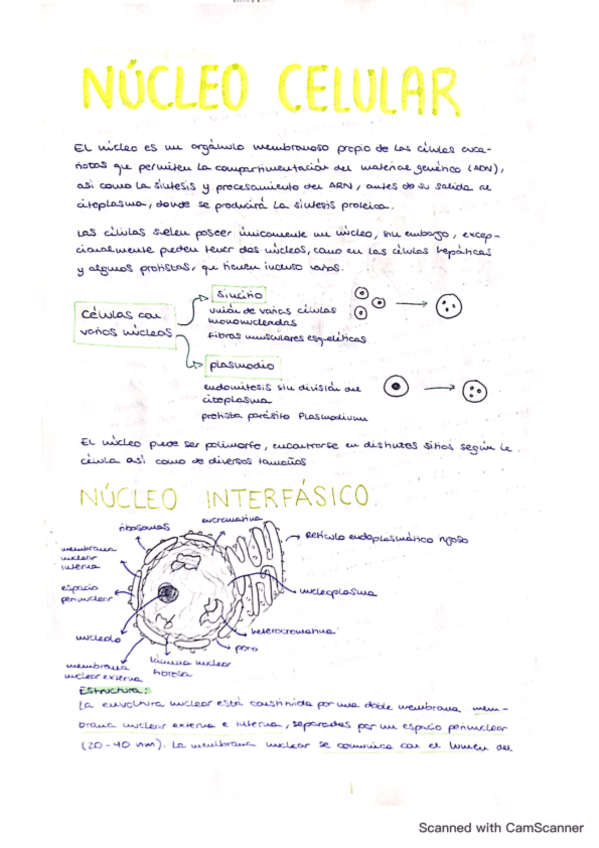 NÚCLEO CELULAR
El núcleo es un orgánulo membranoso propio de las células euca-
riotas que permiten la compartimentación del material genético (ADN),
así como la síntesis y procesamiento del ARN, antes de su salida al
citoplasma, donde se producirá la síntesis proteica.
Las células suelen poseer únicamente un núcleo, sin embargo, excep-
cionalmente pueden tener dos núcleos, como en las células hepáticas
y algunos protistas, que tienen incluso varios.
Células con
varios núcleos
sincitio
unión de varias células
mononucleadas
fibras musculares esqueléticas
plasmodio
endomitosis sin división del
citoplasma
protista parásito Plasmodium
El núcleo puede ser polimorfo, encontrarse en distintos sitios según la
célula así como de diversos tamaños
NÚCLEO INTERFÁSICO
ribosomas
eucromatina
Retículo endoplasmático rugoso
membrana
nuclear
interna
espacio
perinuclear
nucleoplasma
nucleolo
heterocromatina
poro
membrana
nuclear externa
lámina nuclear
fibrosa
Estructura:
La envoltura nuclear está constituida por una doble membrana, mem-
brana nuclear externa e interna, separadas por un espacio perinuclear
(20-40 nm). La membrana nuclear se comunica con el lumen del
1
Scanned with CamScanner